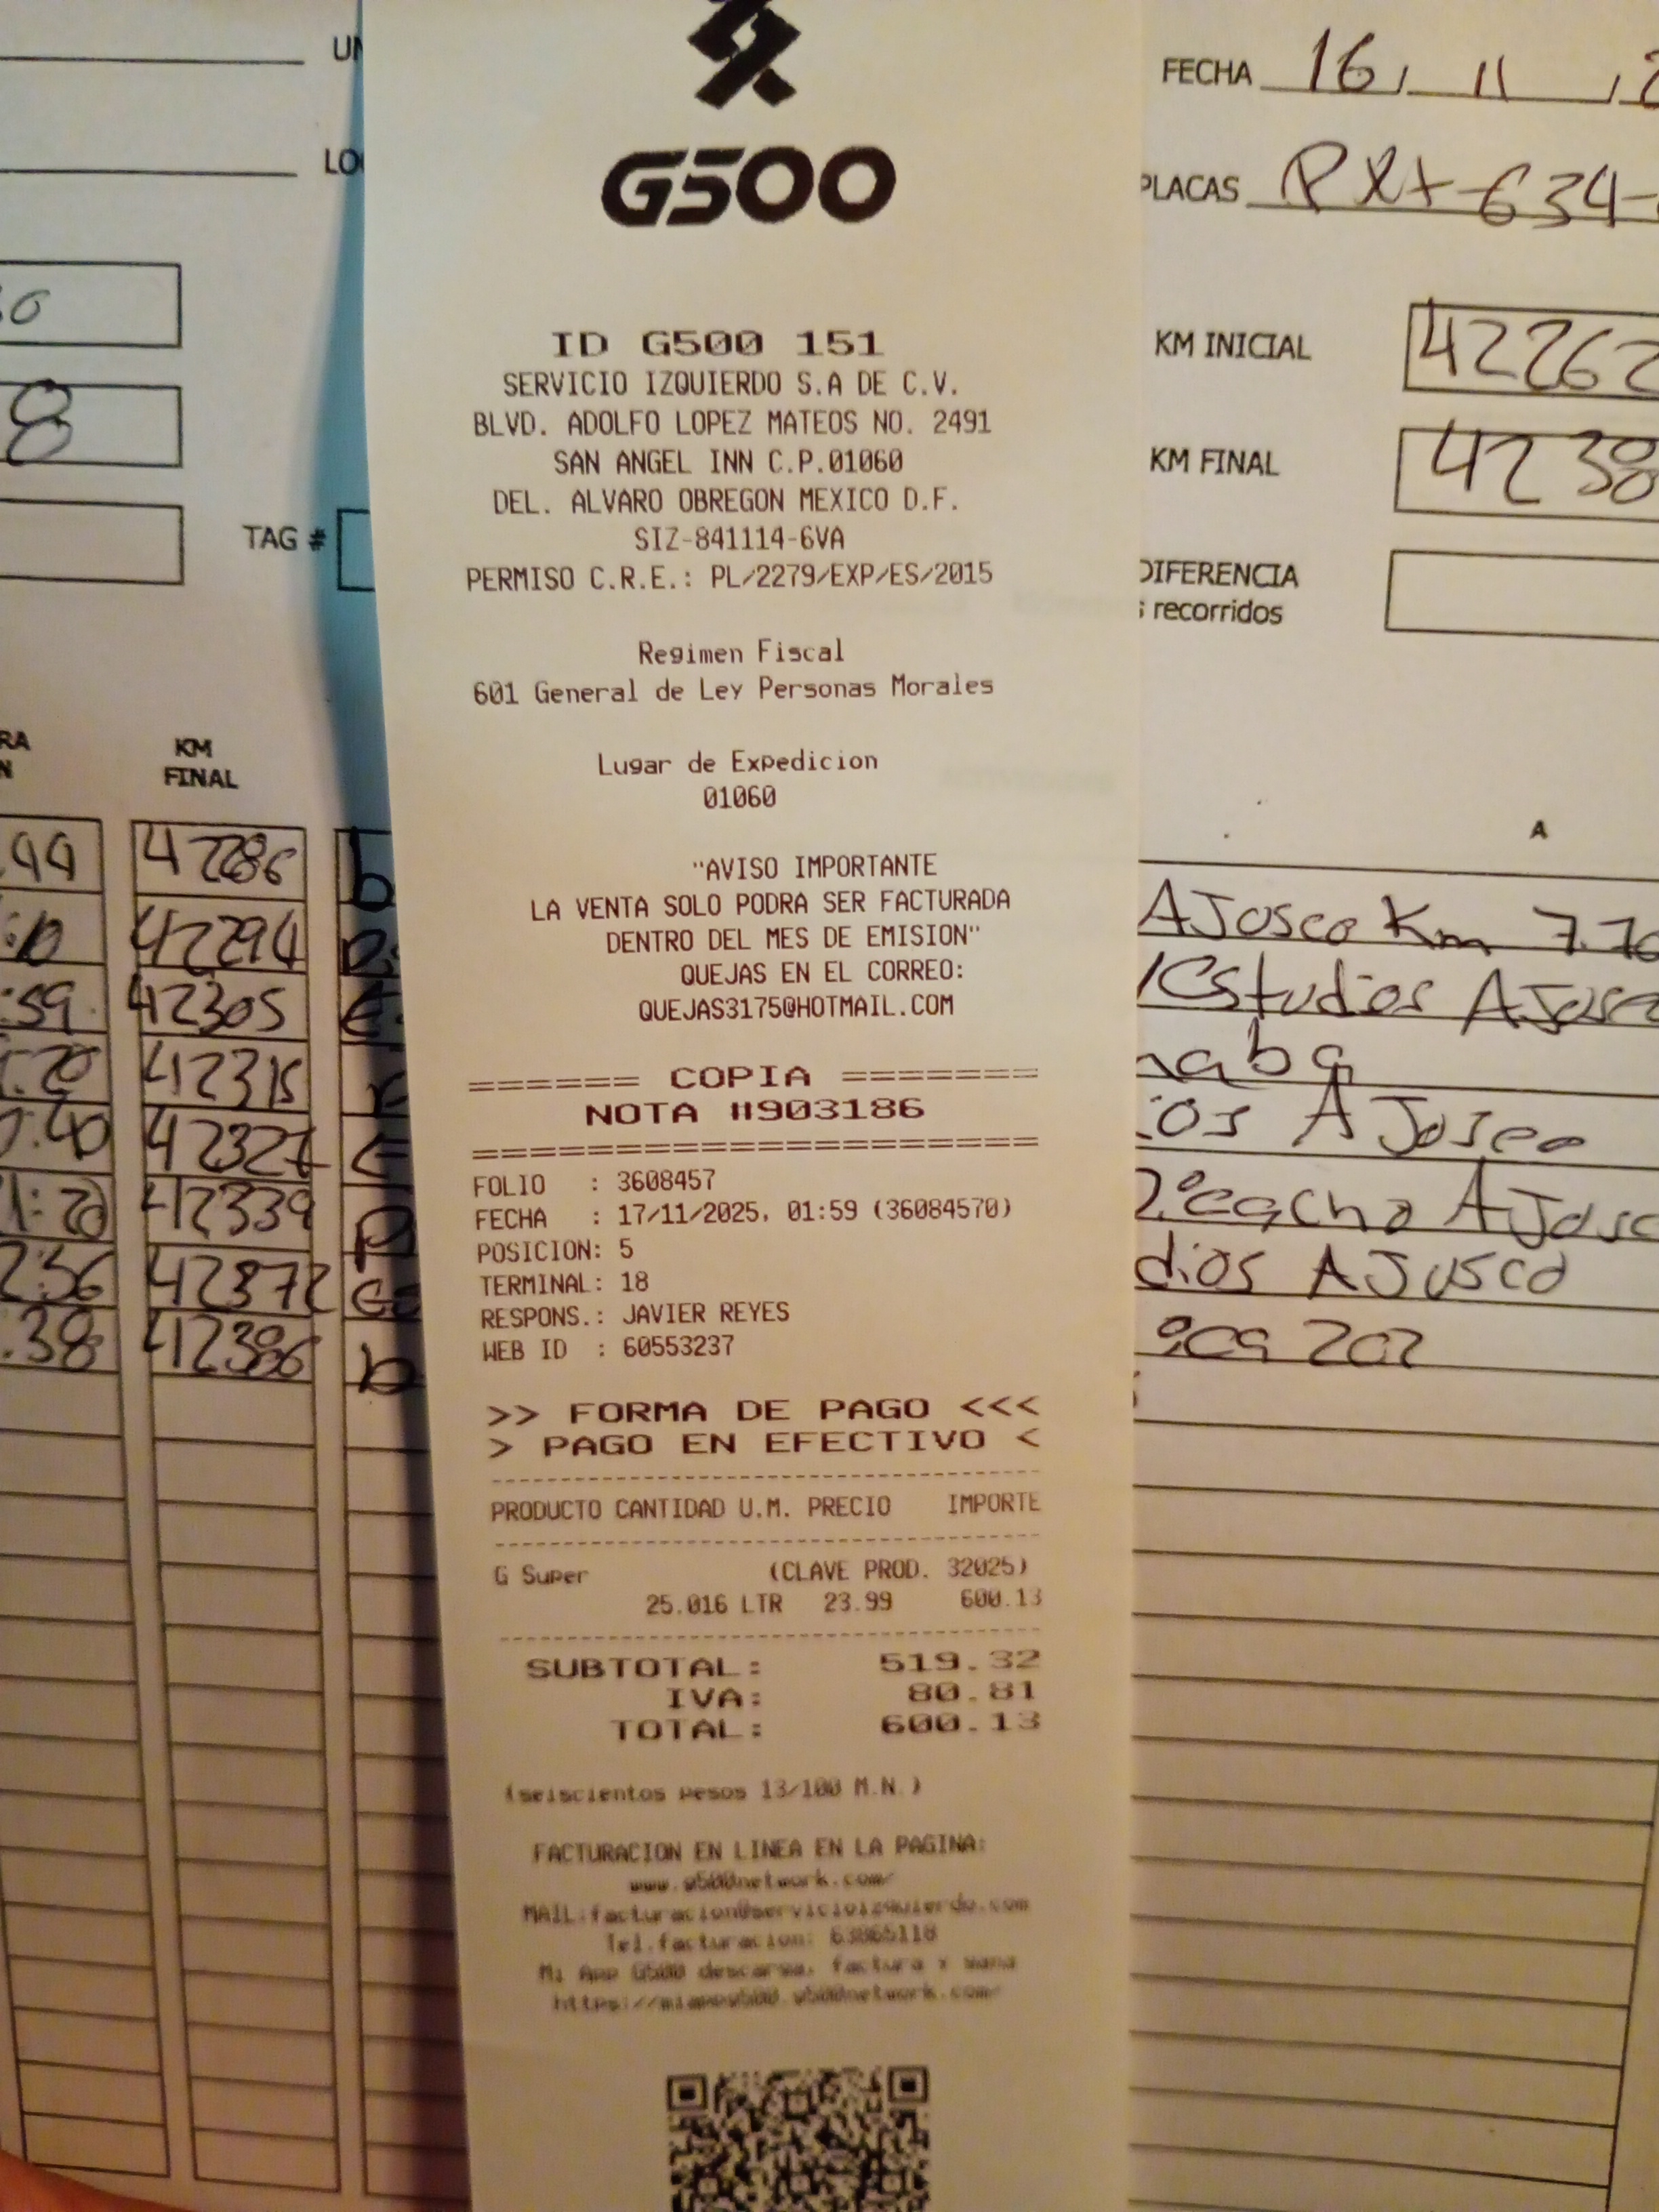 G500
ID G500 151
SERVICIO IZQUIERDO S.A DE C.V.
BLVD. ADOLFO LOPEZ MATEOS NO. 2491
SAN ANGEL INN C.P.01060
DEL. ALVARO OBREGON MEXICO D.F.
SIZ-841114-6VA
PERMISO C.R.E.: PL/2279/EXP/ES/2015
Regimen Fiscal
601 General de Ley Personas Morales
Lugar de Expedicion
01060
"AVISO IMPORTANTE
LA VENTA SOLO PODRA SER FACTURADA
DENTRO DEL MES DE EMISION"
QUEJAS EN EL CORREO:
QUEJAS3175@HOTMAIL.COM
====== COPIA =======
NOTA #903186
====================
FOLIO : 3608457
FECHA : 17/11/2025, 01:59 (36084570)
POSICION: 5
TERMINAL: 18
RESPONS.: JAVIER REYES
WEB ID : 60553237
>> FORMA DE PAGO <<<
> PAGO EN EFECTIVO <
PRODUCTO CANTIDAD U.M. PRECIO IMPORTE
G Super (CLAVE PROD. 32025)
25.016 LTR 23.99 600.13
SUBTOTAL: 519.32
IVA: 80.81
TOTAL: 600.13
(seiscientos pesos 13/100 M.N.)
FACTURACION EN LINEA EN LA PAGINA:
www.g500network.com/
MAIL:facturacion@servicioizquierdo.com
Tel.facturacion: 63865118
Mi App G500 descarga, factura y gana
https://miappg500.g500network.com/
TAG #
KM
FINAL
42286
42294
42305
42315
42327
42339
42372
42386
FECHA 16/ 11 /2
PLACAS PXX-634-
KM INICIAL 42262
KM FINAL 4238
DIFERENCIA
recorridos
A
AJosco Km 7.
Estudios AJosco
AJosco
AJosco
dios AJusco